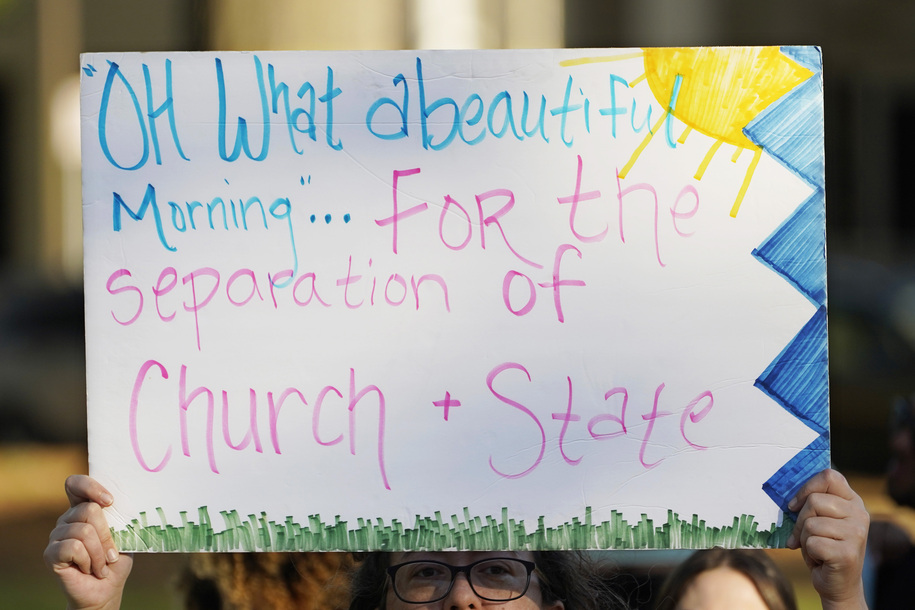 "OH What a beautiful
Morning"... FOR the
separation of
Church + State